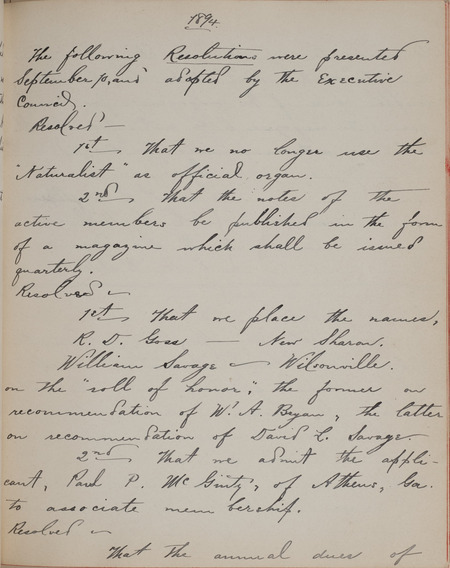 1894.
The following Resolutions were presented
September 10, and adopted by the Executive
Council.
Resolved —
1st — That we no longer use the
"Naturalist" as official organ.
2nd — That the notes of the
active members be published in the form
of a magazine which shall be issued
quarterly.
Resolved —
1st — That we place the names,
R. D. Goss — New Sharon.
William Savage — Wilsonville.
on the "roll of honor", the former on
recommendation of W. A. Bryan, the latter
on recommendation of David L. Savage.
2nd — That we admit the appli-
cant, Paul P. McGinty, of Athens, Ga.
to associate membership.
Resolved —
That the annual dues of